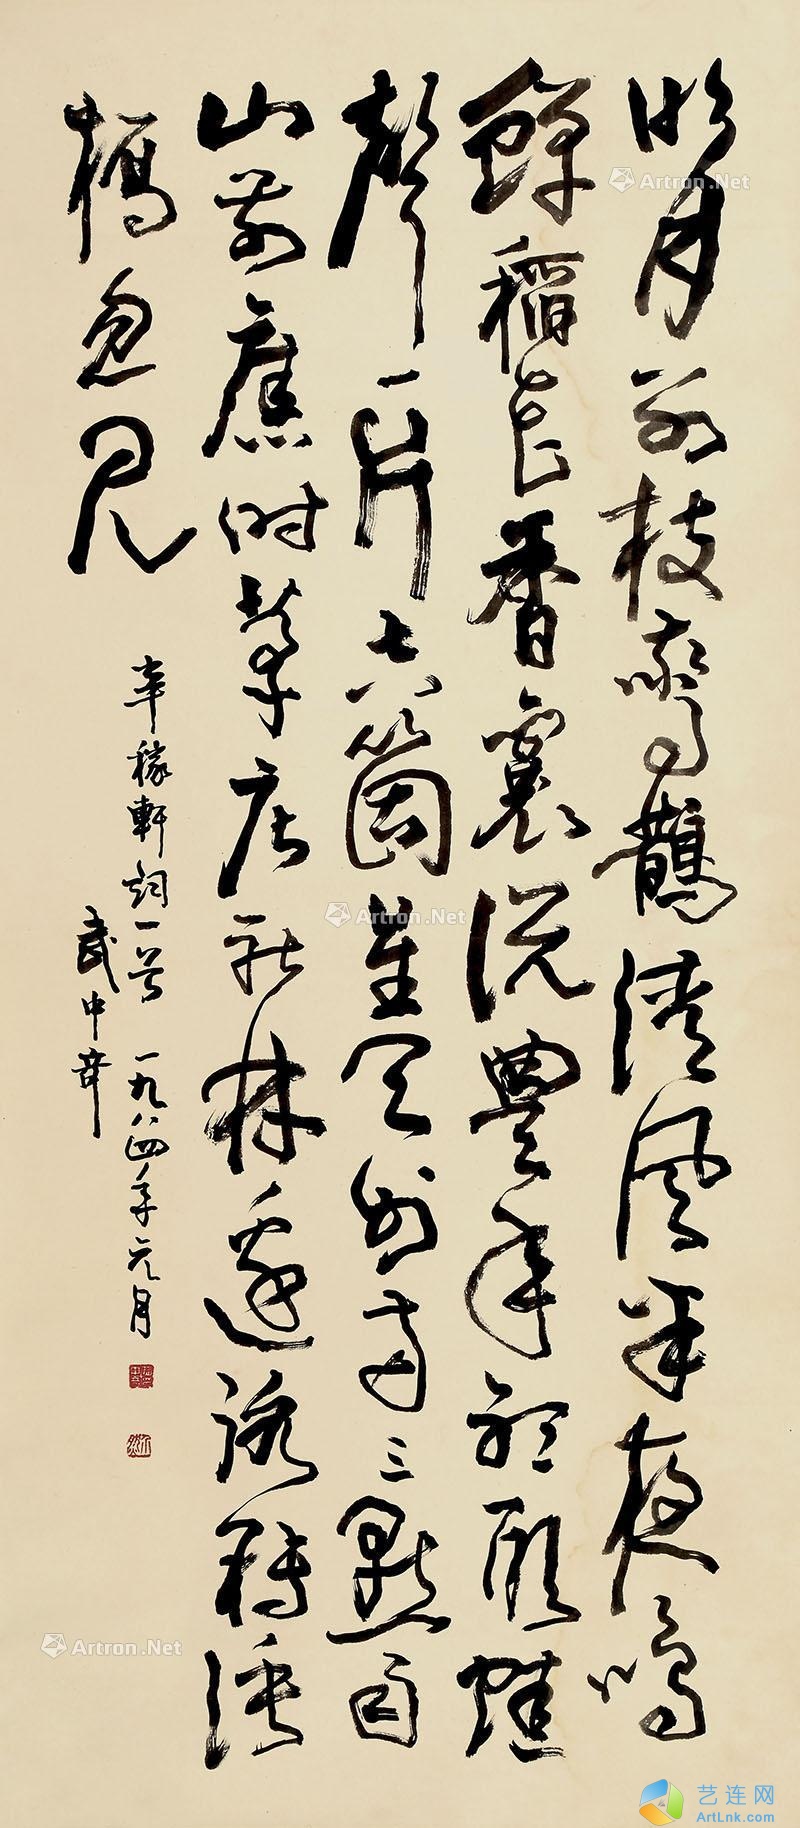 明月别枝驚鵲清風半夜鳴
蟬稻花香裏說豐年聽取蛙
聲一片七八箇星天外兩三點雨
山前舊時茅店社林邊路轉溪
橋忽見
辛稼軒詞一首 一九八四年元月
武中奇
Artron.Net
Artron.Net
Artron.Net
艺连网
ArtLnk.com